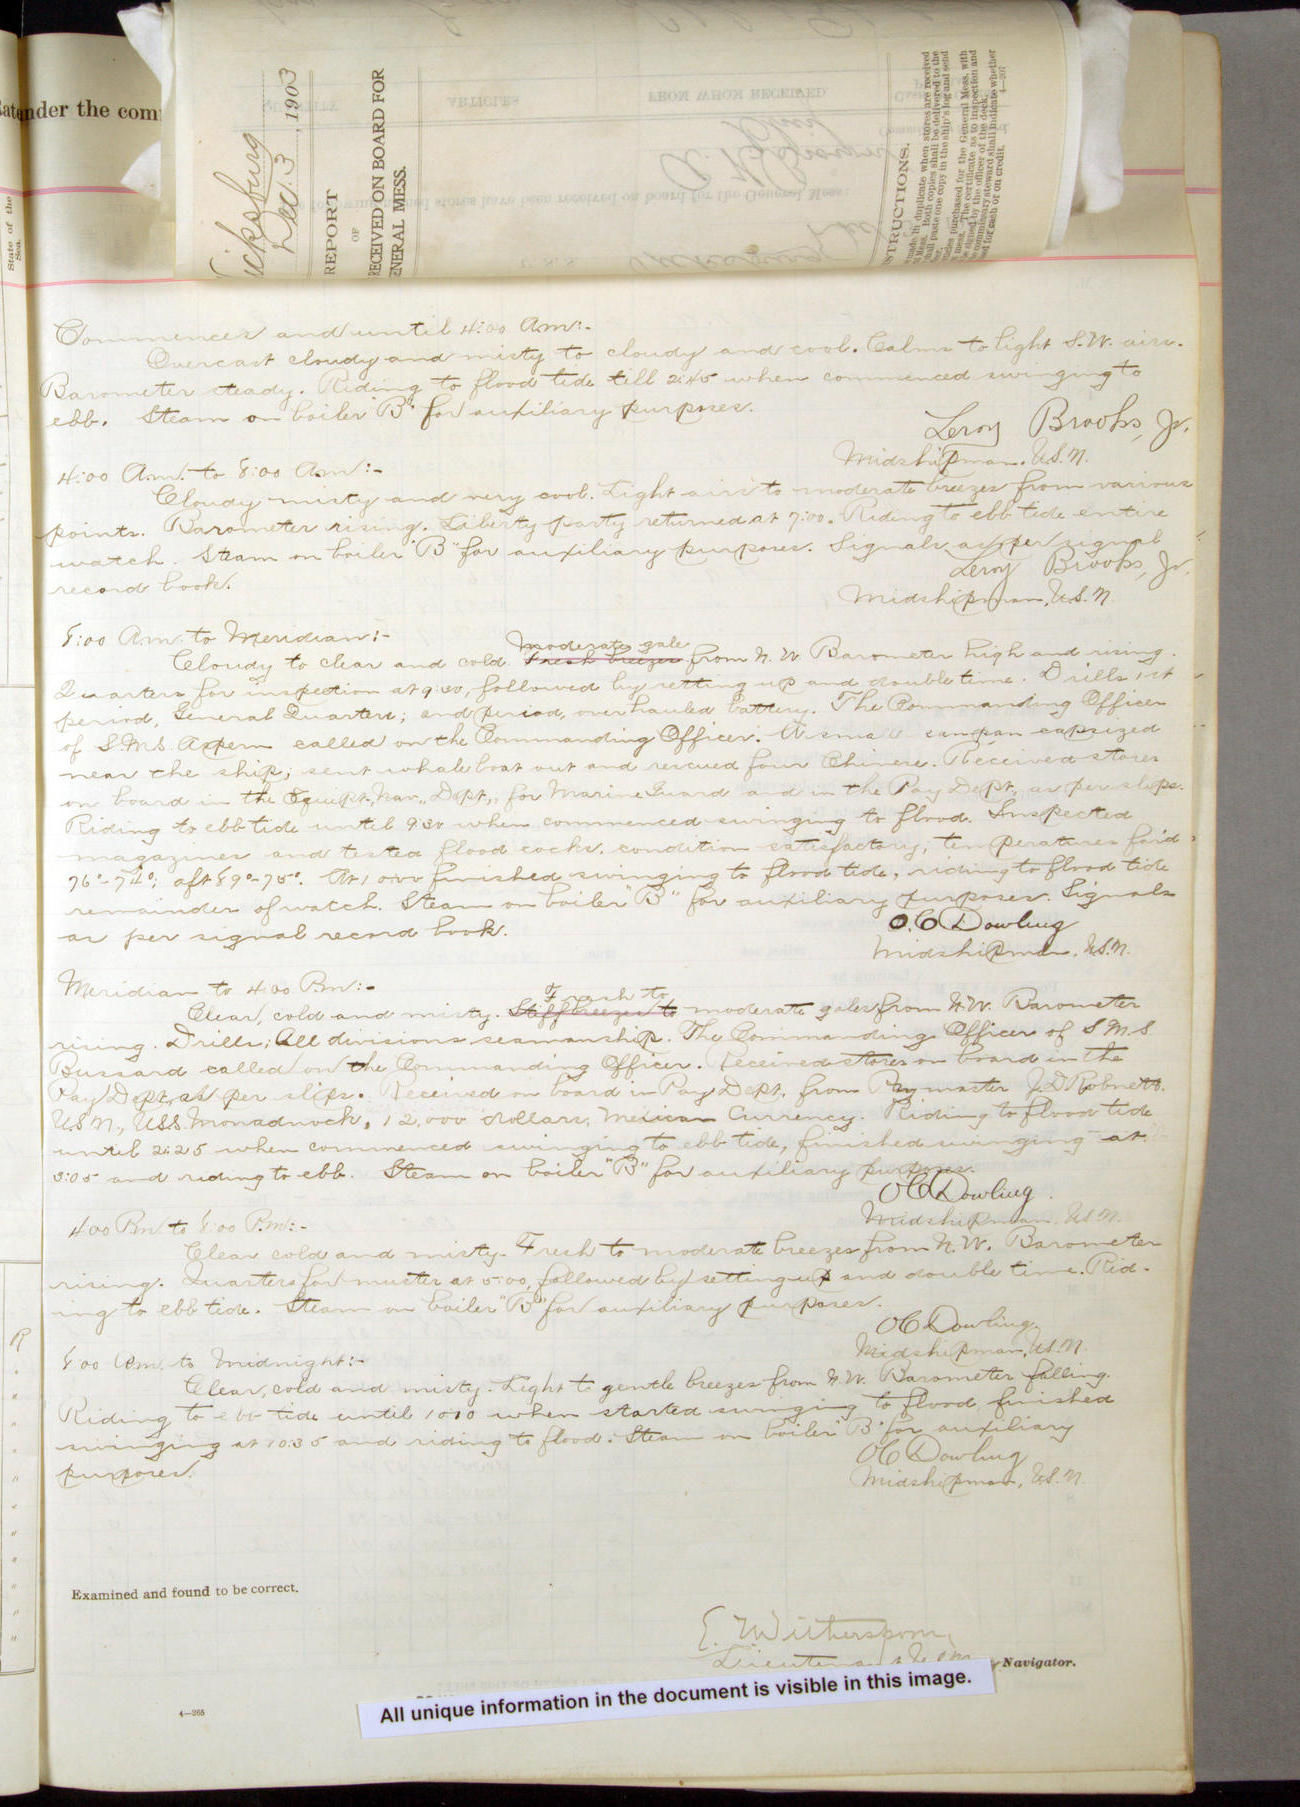 under the com
State of the Sea.
Vicksburg
Dec. 3, 1903
REPORT
OF
RECEIVED ON BOARD FOR
GENERAL MESS.
Commences and until 4:00 A.m:-
Overcast cloudy and misty to cloudy and cool. Calms to light S.W. airs.
Barometer steady. Riding to flood tide till 2:45 when commenced swinging to
ebb. Steam on boiler "B" for auxiliary purposes.
Leroy Brooks, Jr.
Midshipman. U.S.N.
4:00 A.m. to 8:00 A.m:-
Cloudy misty and very cool. Light airs to moderate breezes from various
points. Barometer rising. Liberty party returned at 7:00. Riding to ebb tide entire
watch. Steam on boiler "B" for auxiliary purposes. Signals as per signal
record book.
Leroy Brooks, Jr.
Midshipman, U.S.N.
8:00 A.m. to Meridian:-
moderate gale
Cloudy to clear and cold. Fresh breezes from N.W. Barometer high and rising.
Quarters for inspection at 9:00, followed by setting up and double time. Drills 1st
period, General Quarters; 2nd period, overhauled battery. The Commanding Officer
of S.M.S. Aspern called on the Commanding Officer. A small sampan capsized
near the ship; sent whale boat out and rescued four Chinese. Received stores
on board in the Equipt., Nav., Dept., for Marine Guard and in the Pay Dept., as per slips.
Riding to ebb tide until 9:30 when commenced swinging to flood. Inspected
magazines and tested flood cocks. condition satisfactory; temperatures for'd
76°-74°; aft 89°-75°. At 10:00 finished swinging to flood tide, riding to flood tide
remainder of watch. Steam on boiler "B" for auxiliary purposes. Signals
as per signal record book.
O.C. Dowling
Midshipman. U.S.N.
Meridian to 4:00 P.m:-
Fresh to
Clear, cold and misty. Stiff breezes to moderate gales from N.W. Barometer
rising. Drills; All divisions seamanship. The Commanding Officer of S.M.S
Bussard called on the Commanding Officer. Received stores on board in the
Pay Dept, as per slips. Received on board in Pay Dept. from Paymaster J.D Robnett.
U.S.N., U.S.S. Monadnock, 12,000 dollars, Mexican Currency. Riding to flood tide
until 2:25 when commenced swinging to ebb tide, finished swinging at
3:05 and riding to ebb. Steam on boiler "B" for auxiliary purposes.
O.C. Dowling.
Midshipman. U.S.N.
4:00 P.m. to 8:00 P.m:-
Clear cold and misty. Fresh to moderate breezes from N.W. Barometer
rising. Quarters for muster at 5:00, followed by setting up and double time. Rid-
ing to ebb tide. Steam on boiler "B" for auxiliary purposes.
O.C. Dowling.
Midshipman, U.S.N.
8:00 P.m. to Midnight:-
Clear, cold and misty. Light to gentle breezes from N.W. Barometer falling.
Riding to ebb tide until 10:10 when started swinging to flood, finished
swinging at 10:35 and riding to flood. Steam on boiler "B" for auxiliary
purposes.
O.C. Dowling
Midshipman, U.S.N.
Examined and found to be correct.
E. Witherspoon,
Lieutenant U.S.N.
Navigator.
All unique information in the document is visible in this image.
4—265